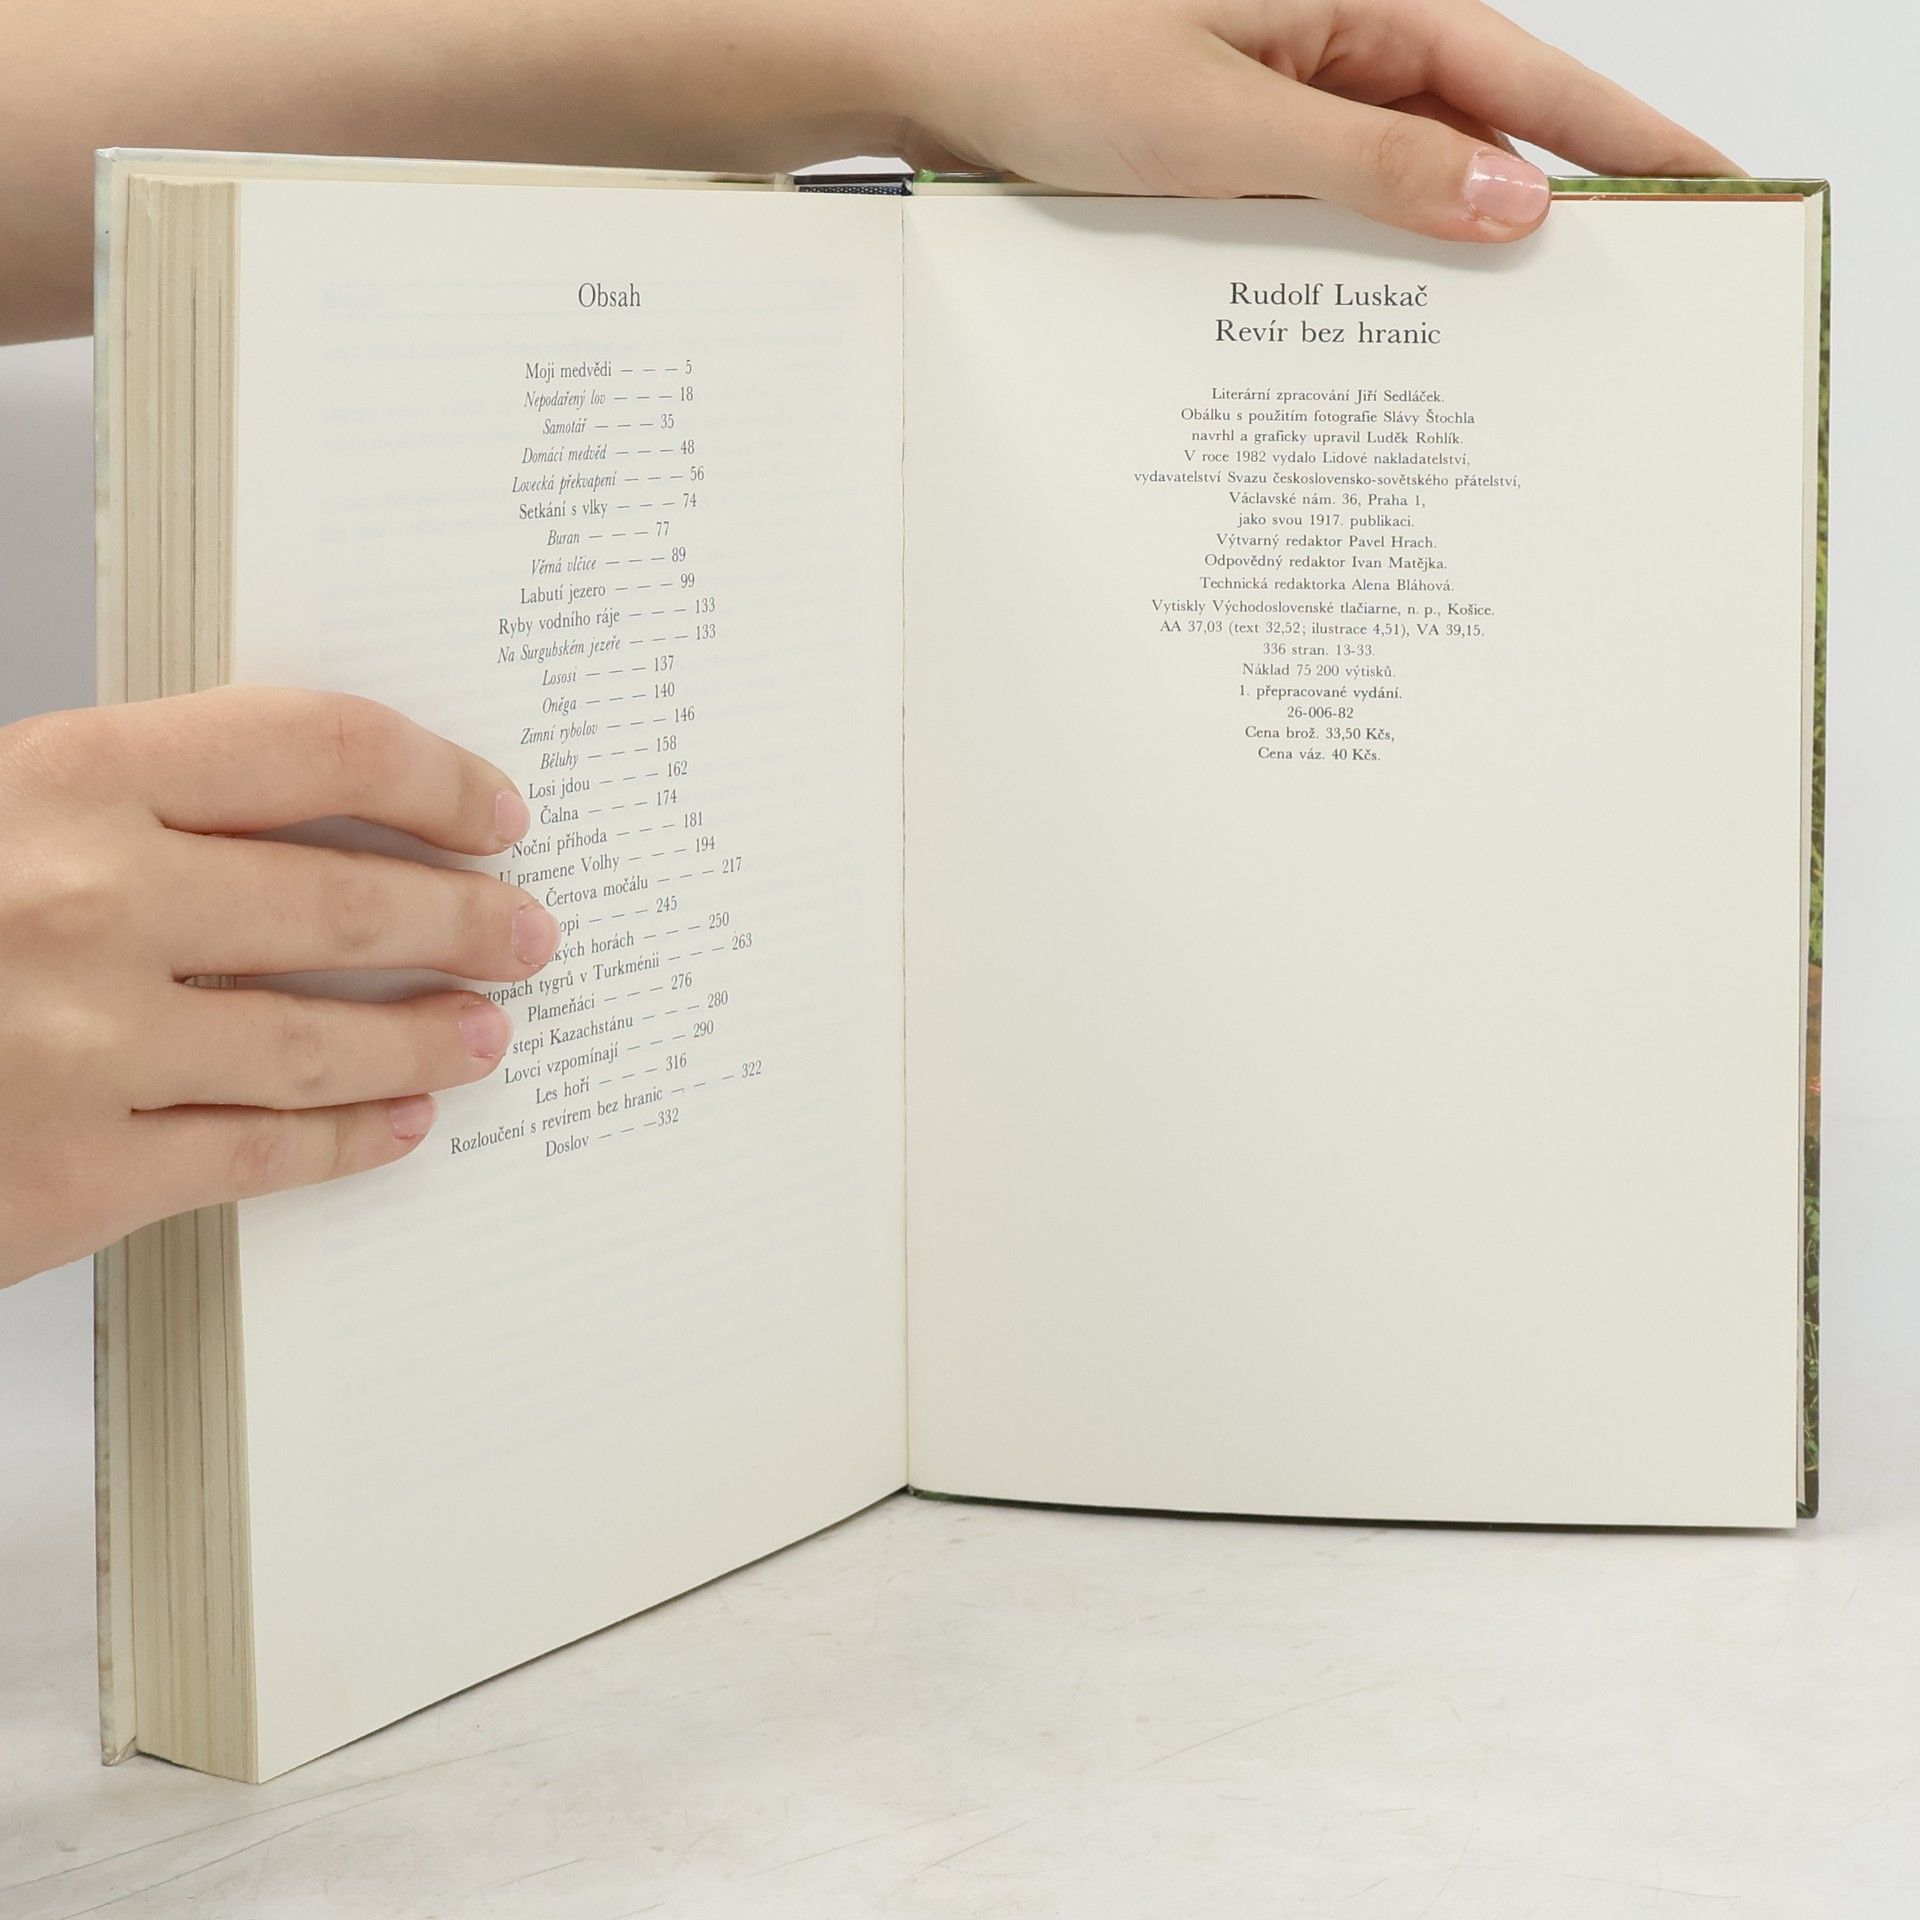 Obsah
Moji medvědi — — — 5
Nepodařený lov — — — 18
Samotář — — — 35
Domácí medvěd — — — 48
Lovecká překvapení — — — 56
Setkání s vlky — — — 74
Buran — — — 77
Věrná vlčice — — — 89
Labutí jezero — — — 99
Ryby vodního ráje — — — 133
Na Surgubském jezeře — — — 133
Lososi — — — 137
Oněga — — — 140
Zimní rybolov — — — 146
Běluhy — — — 158
Losi jdou — — — 162
Čalna — — — 174
Noční příhoda — — — 181
U pramene Volhy — — — 194
Čertova močálu — — — 217
— — — 245
horách — — — 250
tygrů v Turkménii — — — 263
Plameňáci — — — 276
stepi Kazachstánu — — — 280
Lovci vzpomínají — — — 290
Les hoří — — — 316
Rozloučení s revírem bez hranic — — — 322
Doslov — — —332
Rudolf Luskač
Revír bez hranic
Literární zpracování Jiří Sedláček.
Obálku s použitím fotografie Slávy Štochla
navrhl a graficky upravil Luděk Rohlík.
V roce 1982 vydalo Lidové nakladatelství,
vydavatelství Svazu československo-sovětského přátelství,
Václavské nám. 36, Praha 1,
jako svou 1917. publikaci.
Výtvarný redaktor Pavel Hrach.
Odpovědný redaktor Ivan Matějka.
Technická redaktorka Alena Bláhová.
Vytiskly Východoslovenské tlačiarne, n. p., Košice.
AA 37,03 (text 32,52; ilustrace 4,51), VA 39,15.
336 stran. 13-33.
Náklad 75 200 výtisků.
1. přepracované vydání.
26-006-82
Cena brož. 33,50 Kčs,
Cena váz. 40 Kčs.